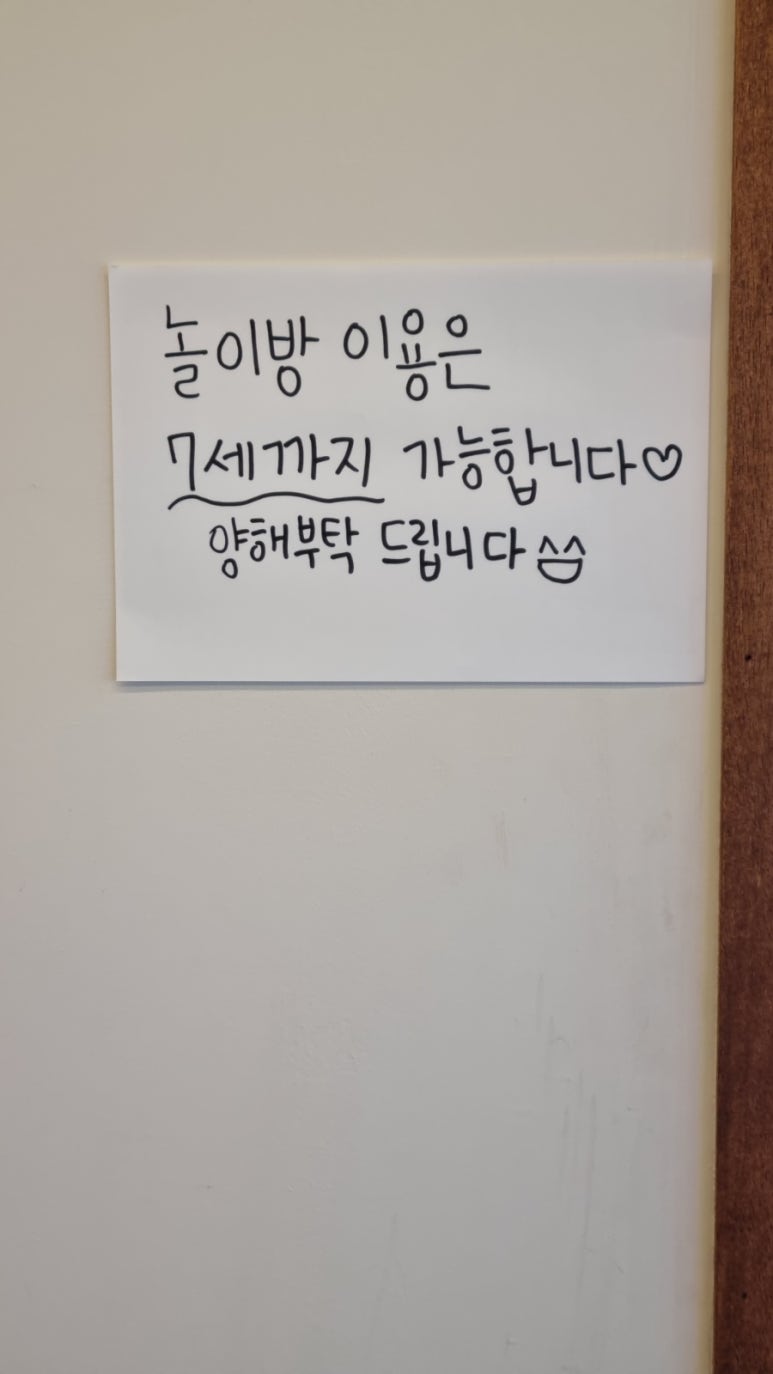 놀이방 이용은
7세까지 가능합니다♡
양해부탁 드립니다